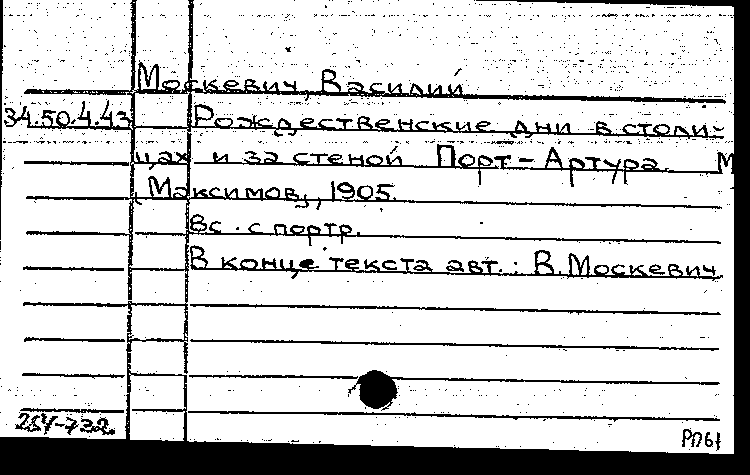 Москевич, Василий
34.50.4.43 Рождественские дни в столи-
цах и за стеной Порт-Артура. М
[Максимов], 1905.
8с. с портр.
В конце текста авт.: В. Москевич.
254-732